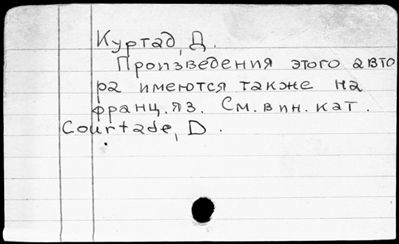 Куртад, Д.
Произведения этого авто
ра имеются также на
франц. яз. См. в ин. кат.
Courtade, D.